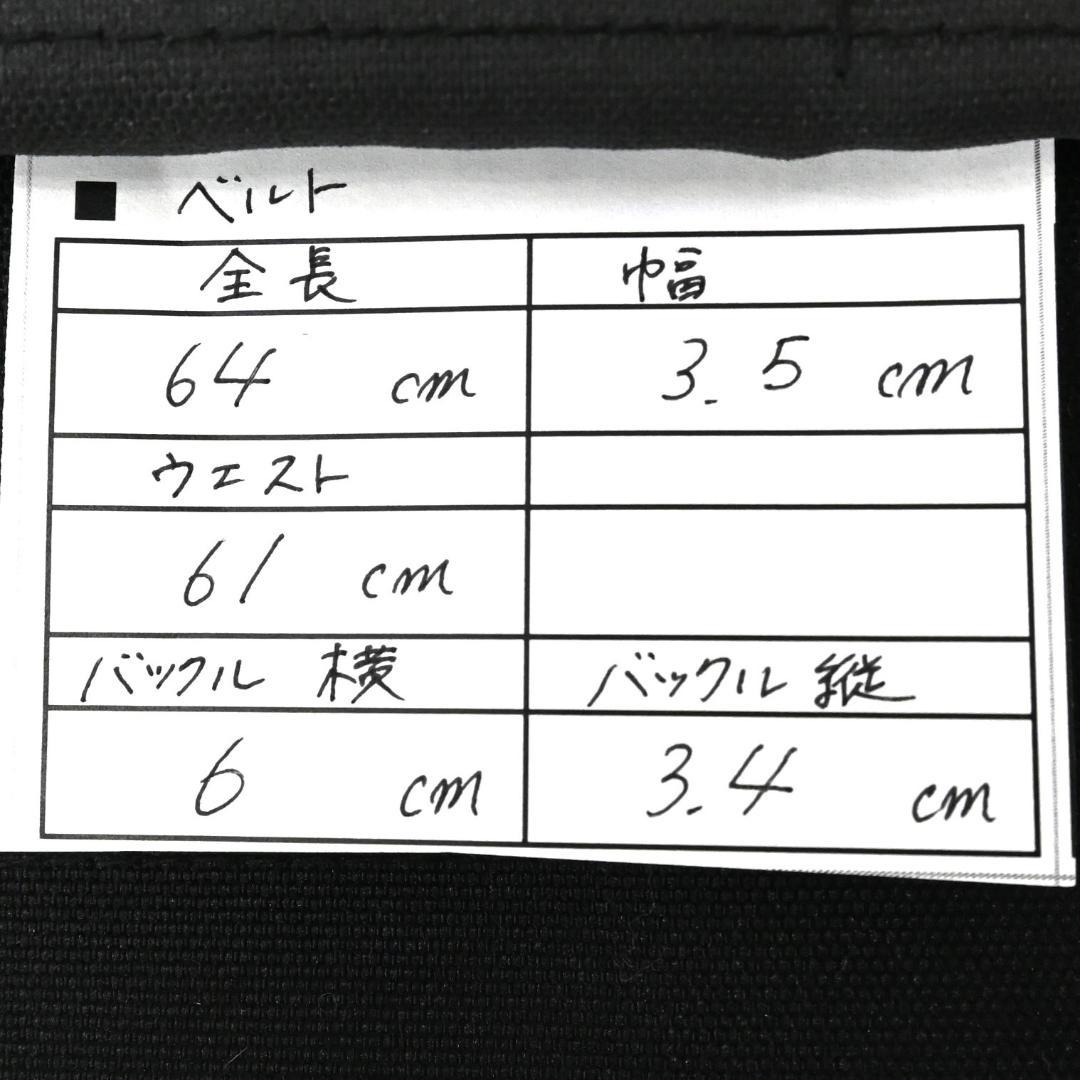 ■ ベルト
全長 幅
64 cm 3.5 cm
ウエスト
61 cm
バックル 横 バックル 縦
6 cm 3.4 cm